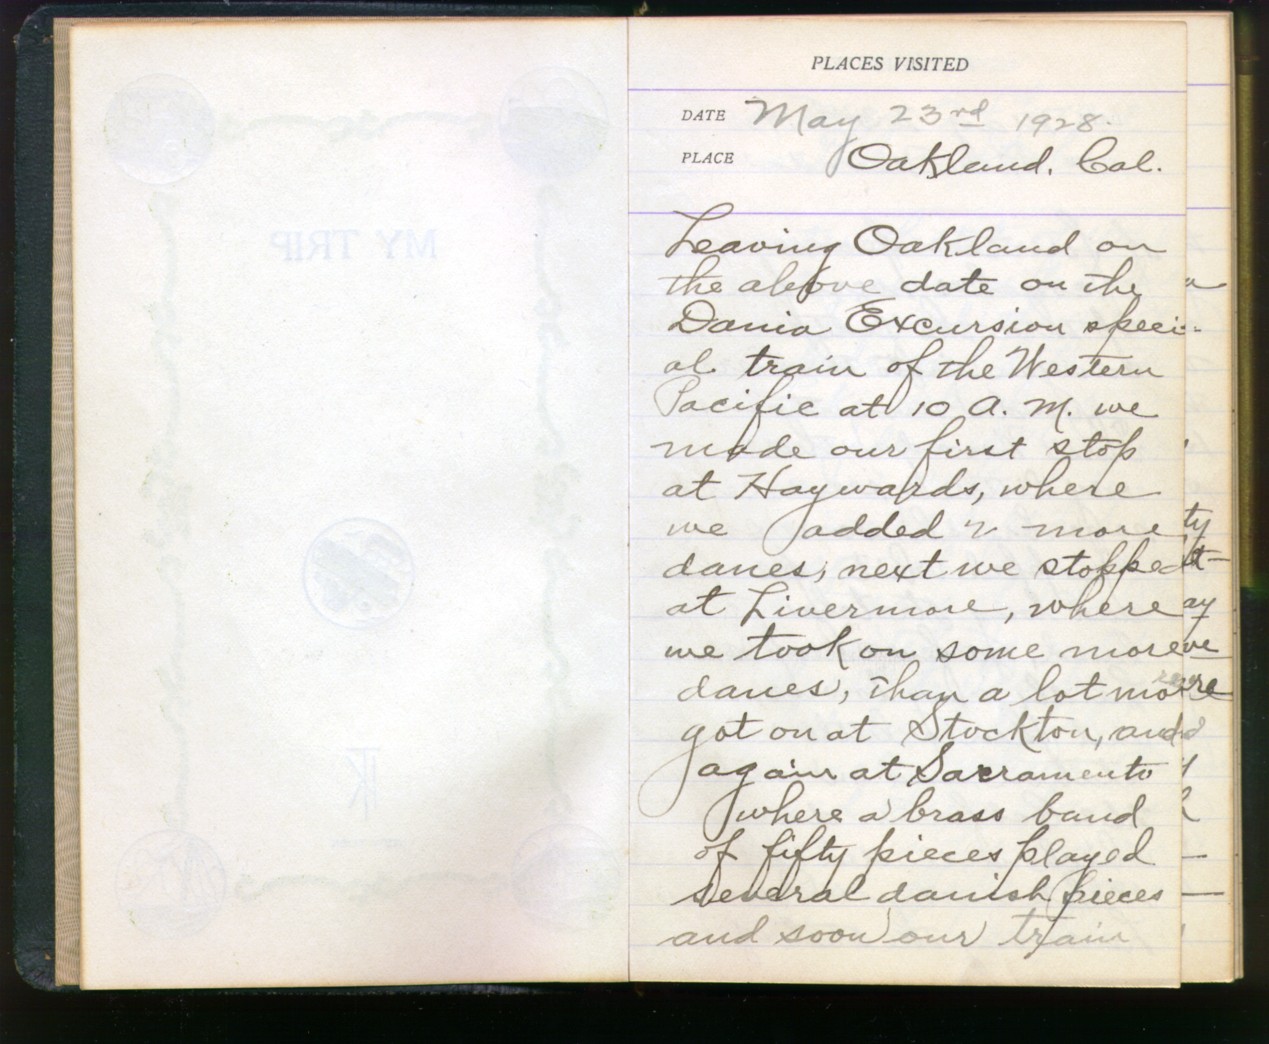 MY TRIP
PLACES VISITED
DATE May 23rd 1928.
PLACE Oakland. Cal.
Leaving Oakland on
the above date on the
Dania Excursion speci-
al train of the Western
Pacific at 10 A. M. we
made our first stop
at Haywards, where
we added 2 more
danes, next we stopped
at Livermore, where
we took on some more
danes, than a lot more
got on at Stockton, and
again at Sacramento
where a brass band
of fifty pieces played
several danish pieces
and soon our train